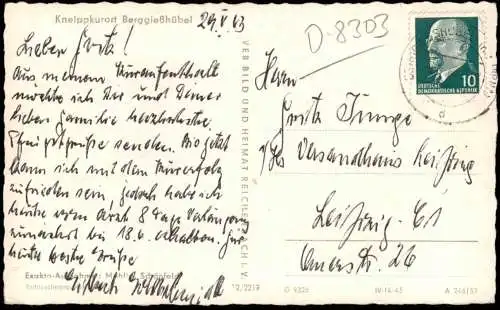 Kneippkurort Berggießhübel
29.V.63
D-8303
Lieber Fritz!
Aus meinem Kuraufenthalt
möchte ich Dir und Deiner
lieben Familie herzlichste
Pfingstgrüße senden. Bis jetzt
kann ich mit dem Kurerfolg
zufrieden sein, jedoch habe ich
heute vom Arzt 8 Tage Verlängerung
zunächst bis 18.6. erhalten. Für
heute beste Grüße
Exakta-Aufnahme: Schönfeld
VEB BILD UND HEIMAT REICHENBACH I. V.
10
DEUTSCHE
DEMOKRATISCHE REPUBLIK
d
Herrn
Fritz Junge
Versandhaus Leipzig
Leipzig C1
26
12/2219
G 9326
IV-14-45
A 246/57